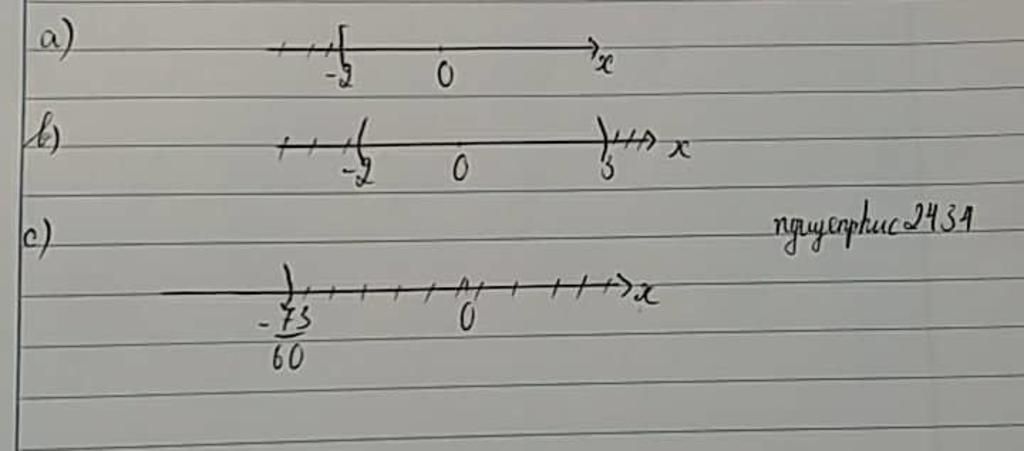 a)
-2 0 x
b)
-2 0 3 x
c)
nguyenphuc2434
-73/60 0 x